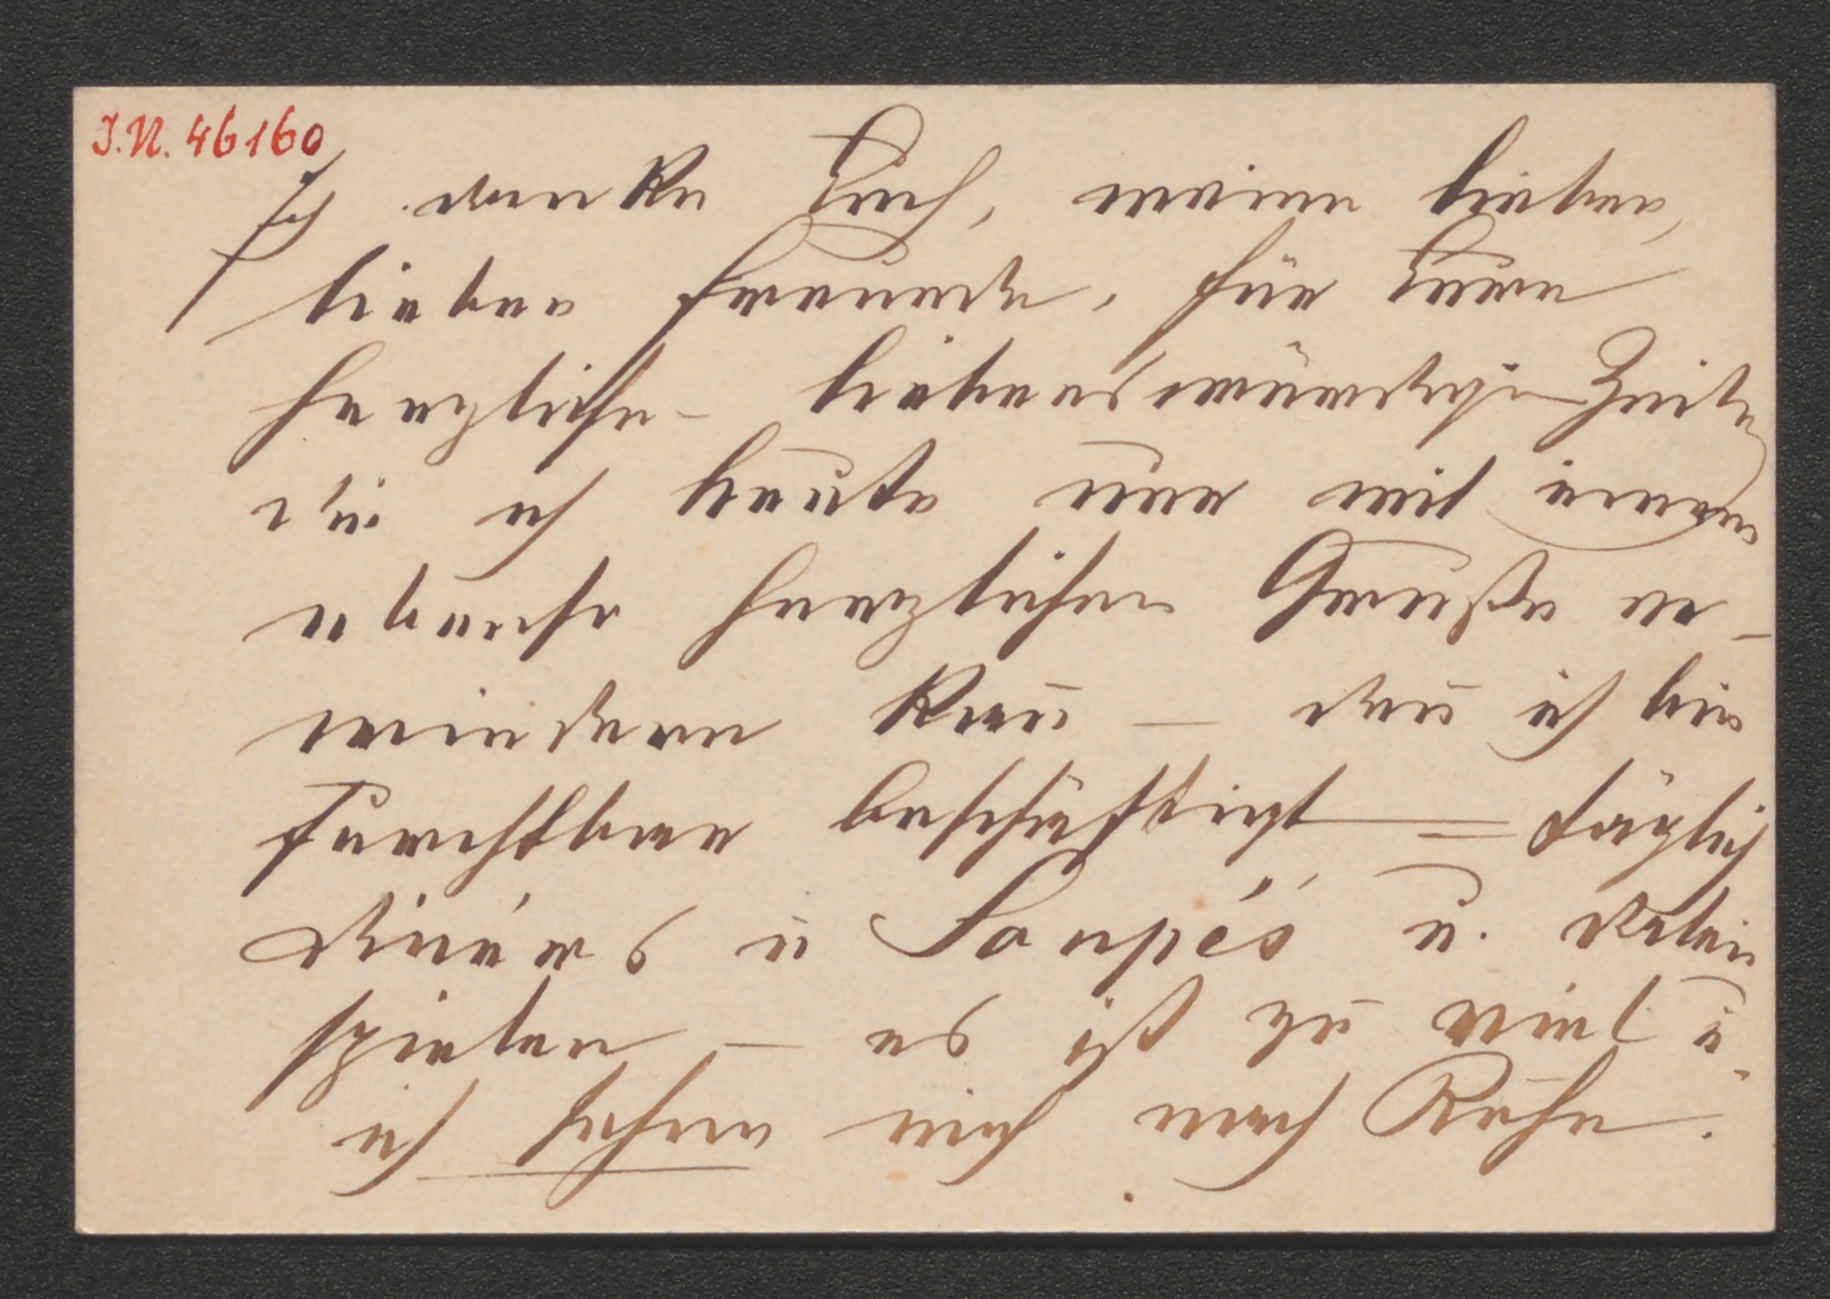 I.N. 46160
Ich danke Euch, meine lieben,
lieben Freunde, für Eure
herzliche - liebenswürdigen Zeilen
die ich heute nur mit einem
ebenso herzlichen Gruße er-
wiedern kann — denn ich bin
furchtbar beschäftigt = täglich
Dinérs u Soupés u.
spielen — es ist zu viel u.
ich sehne mich nach Ruhe.